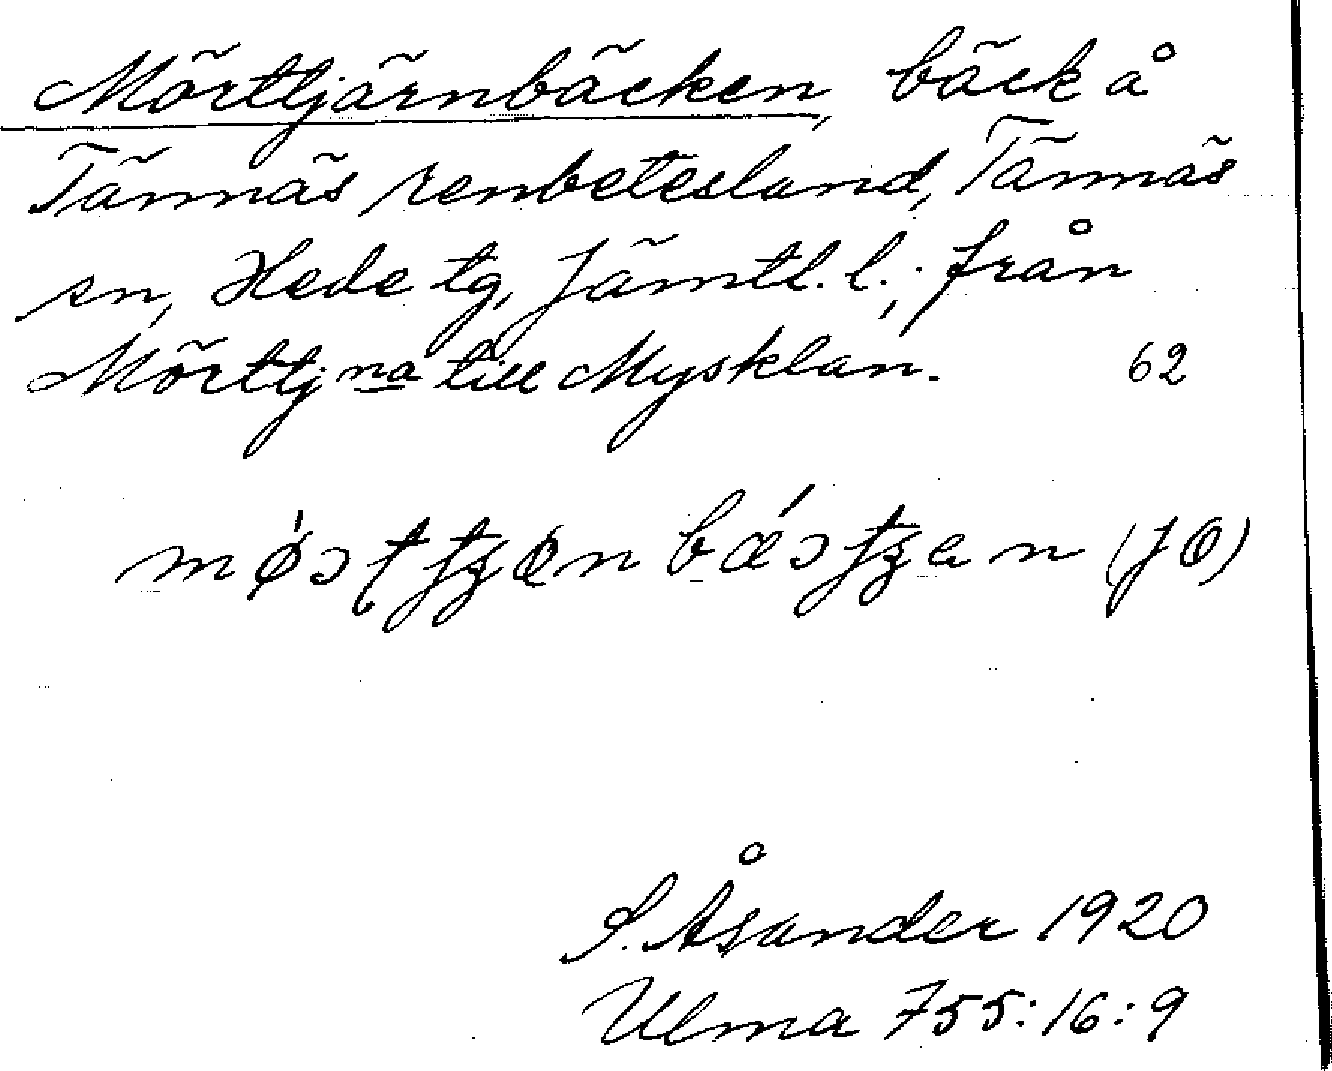 Mörttjärnbäcken, bäck å
Tännäs renbetesland, Tännäs
sn, Hede tg, Jämtl. l.; från
Mörttjna till Mysklan. 62
(JÖ)
S. Åsander 1920
Ulma 755:16:9